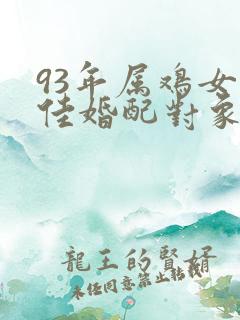 93年属鸡女
佳婚配對象
龍王的賢婿
未任同意禁止轉載